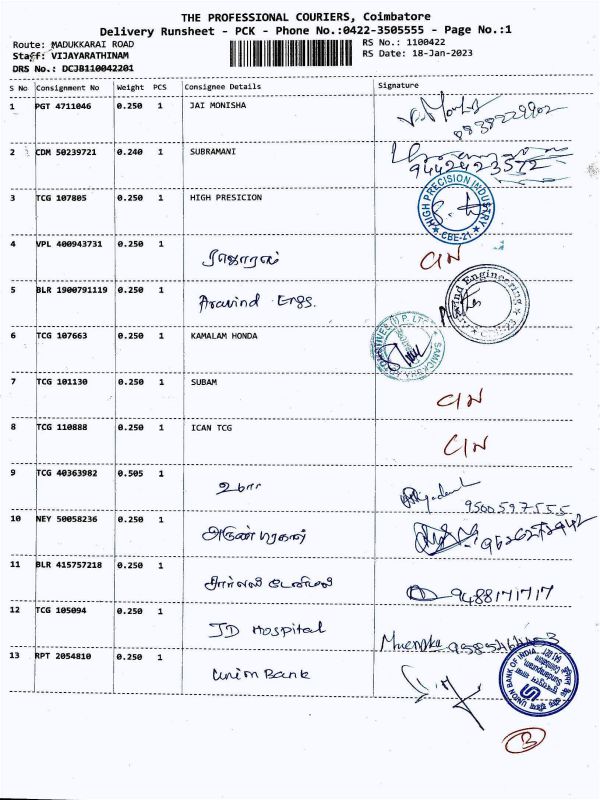 THE PROFESSIONAL COURIERS, Coimbatore
Delivery Runsheet - PCK - Phone No.:0422-3505555 - Page No.:1
Route: MADUKKARAI ROAD RS No.: 1100422
Staff: VIJAYARATHINAM RS Date: 18-Jan-2023
DRS No.: DCJB110042201
S No Consignment No Weight PCS Consignee Details Signature
1 PGT 4711046 0.250 1 JAI MONISHA
2 CDM 50239721 0.240 1 SUBRAMANI
9442423572
3 TCG 107805 0.250 1 HIGH PRESICION
HIGH PRECISION INDUSTRY
CBE-21
4 VPL 400943731 0.250 1 C/N
5 BLR 1900791119 0.250 1 Aravind Engs.
6 TCG 107663 0.250 1 KAMALAM HONDA
7 TCG 101130 0.250 1 SUBAM C/N
8 TCG 110888 0.250 1 ICAN TCG C/N
9 TCG 40363982 0.505 1 உமா
9500597555
10 NEY 50058236 0.250 1
11 BLR 415757218 0.250 1 9488171717
12 TCG 105094 0.250 1 JD Hospital
13 RPT 2054810 0.250 1 Union Bank
UNION BANK OF INDIA
Sundarapuram
Coimbatore